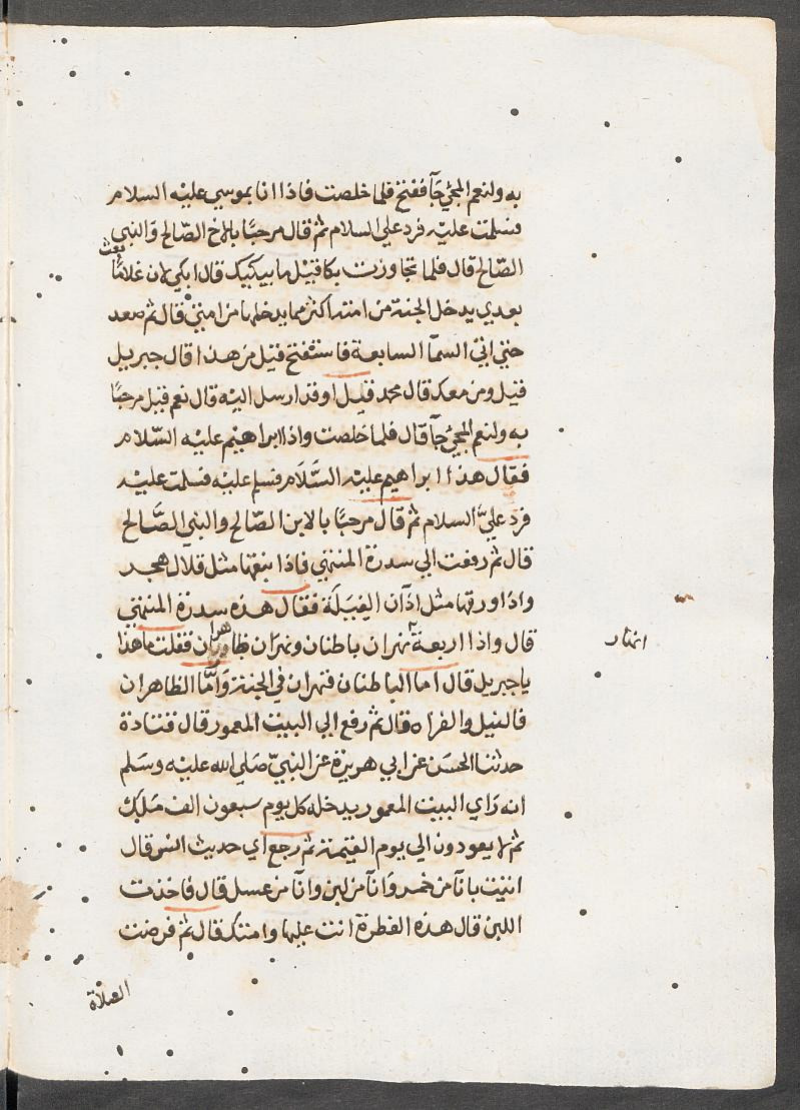 به ولنعم المجيُ جآ ففتح فلما خلصت فاذا انا بموسي عليْه السلام
فسلمت عليْه فرد علي السلام ثم قال مرحبًا بالاخ الصّالح وَالنبي
الصّالح قال فلما تجاوزت بكا فقيْل ما يبكيك قال ابكي لان غلامًا بعث
بعدي يدخل الجنة من امته اكثر مما يدخلها من امتيْ قال ثم صعد
حتي اتيْ السمآ السابعة فاستفتح قيل من هذا قال جبريل
قيل ومن معك قال محمد قيل اوقد ارسل اليْه قال نعم قيل مرحبًا
به ولنعم المجيُ جآ قال فلما خلصت واذا ابراهيْم عليْه السّلام
فقال هذا ابراهيم عليْه السَّلَام فسلم عليْه فسلمت عليْه
فرد عليَّ السلام ثم قال مرحبًا بالابن الصّالح والنبي الصَّالح
قال ثم رفعت الي سدرة المنتهي فاذا نبقها مثل قلال هجر
واذا ورقها مثل اذآن الفِيَلَة فقال هذه سدرة المنتهي
قال واذا اربعة نهران باطنان ونهران ظاهران فقلت ما هذا
انهار
يا جبريل قال اما الباطنان فنهران في الجنة وَامَّا الظاهران
فالنيل والفراه قال ثم رفع الي البيت المعمور قال قتادة
حدثنا الحسَن عن ابي هريرة عن النبيّ صَلي الله عليْه وسَلم
انه رَاي البيت المعمور يدخله كل يوم سبعون الف مَلَك
ثم لا يعودون الي يوم القيْمة ثم رجع اي حديث انس قال
اتيْت بانآ من خمر وَانآ من لبن وانآ من عسل قال فاخذت
اللبن قال هذه الفطرة انت عليها وامتك قال ثم فرضت
الصلاة